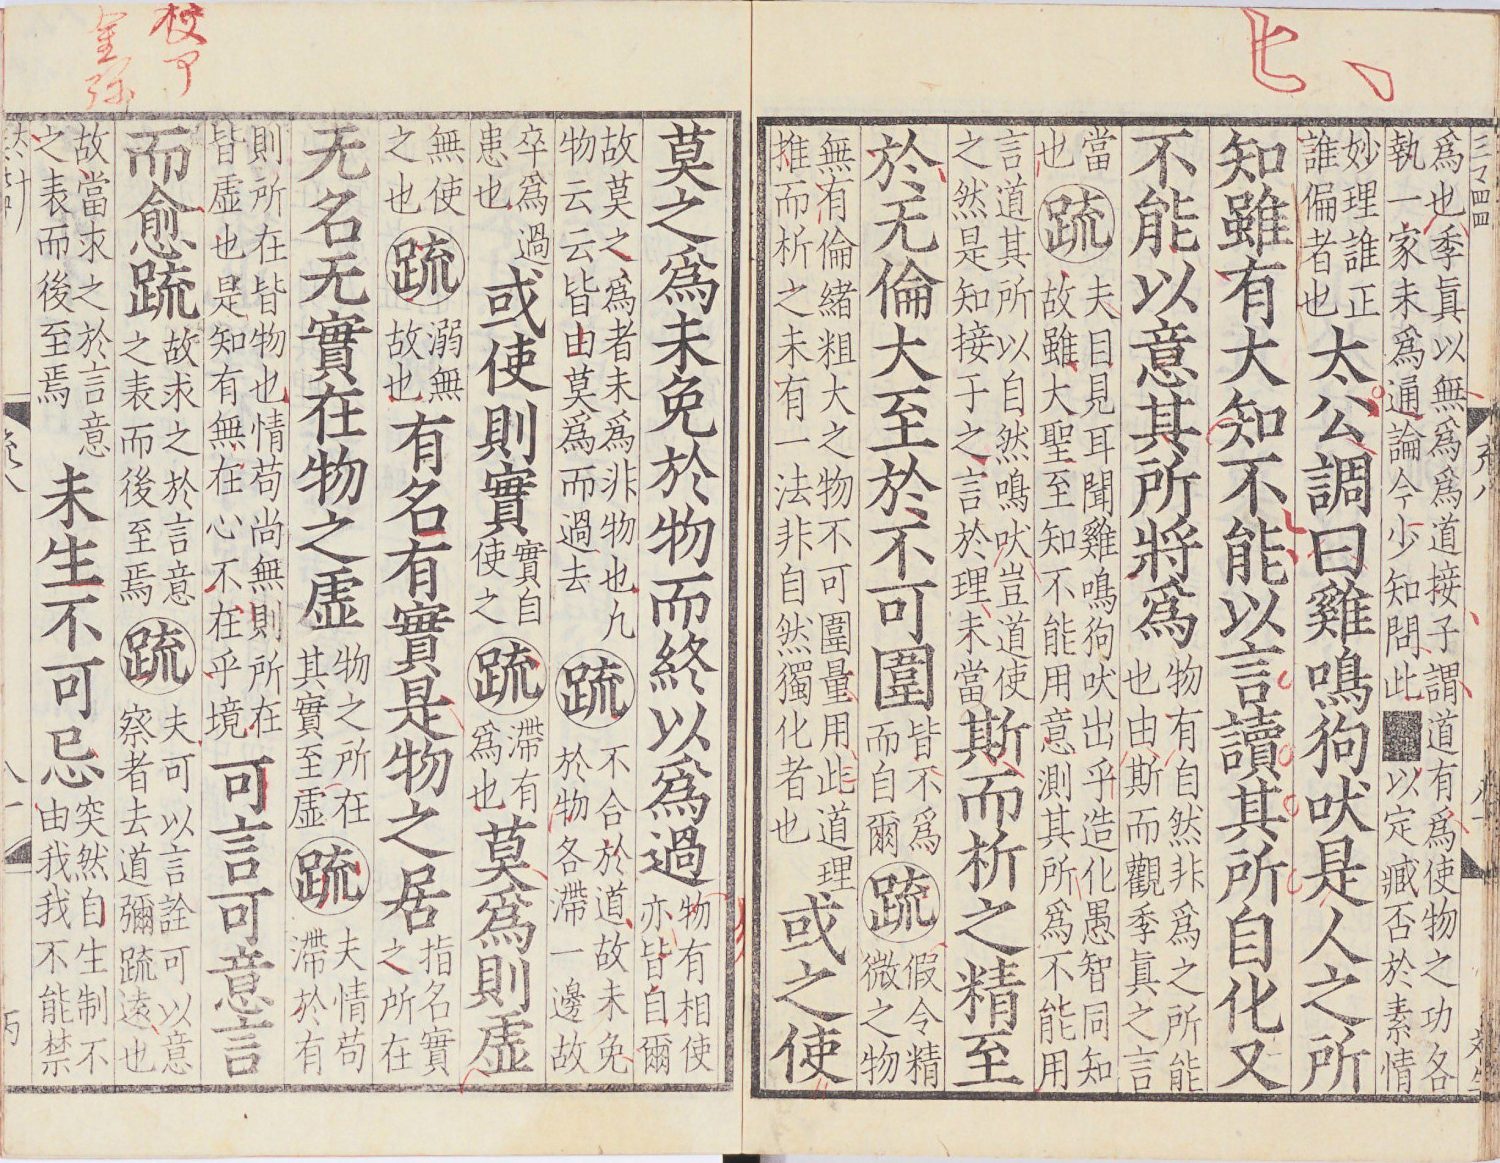 為也季真以無為為道接子謂道有為使物之功各
執一家未為通論今少知問此■以定臧否於素情
妙理誰正
誰偏者也
太公調曰雞鳴狗吠是人之所
知雖有大知不能以言讀其所自化又
不能以意其所將為
物有自然非為之所能
也由斯而觀季真之言
當
也
疏
夫目見耳聞雞鳴狗吠出乎造化愚智同知
故雖大聖至知不能用意測其所為不能用
言道其所以自然鳴吠豈道使
之然是知接子之言於理未當
斯而析之精至
於无倫大至於不可圍
皆不為
而自爾
疏
假令精
微之物
無有倫緒粗大之物不可圍量用此道理
推而析之未有一法非自然獨化者也
或之使
校了
莫之為未免於物而終以為過
物有相使
亦皆自爾
故莫之為者未為非物也凡
物云云皆由莫為而過去
疏
不合於道故未免
於物各滯一邊故
卒為過
患也
或使則實
實自
使之
疏
滯有
為也
莫為則虛
無使
之也
疏
溺無
故也
有名有實是物之居
指名實
之所在
无名无實在物之虛
物之所在
其實至虛
疏
夫情苟
滯於有
則所在皆物也情苟尚無則所在
皆虛也是知有無在心不在乎境
可言可意言
而愈疏
故求之於言意
之表而後至焉
疏
夫可以言詮可以意
察者去道彌疏遠也
故當求之於言意
之表而後至焉
未生不可忌
突然自生制不
由我我不能禁